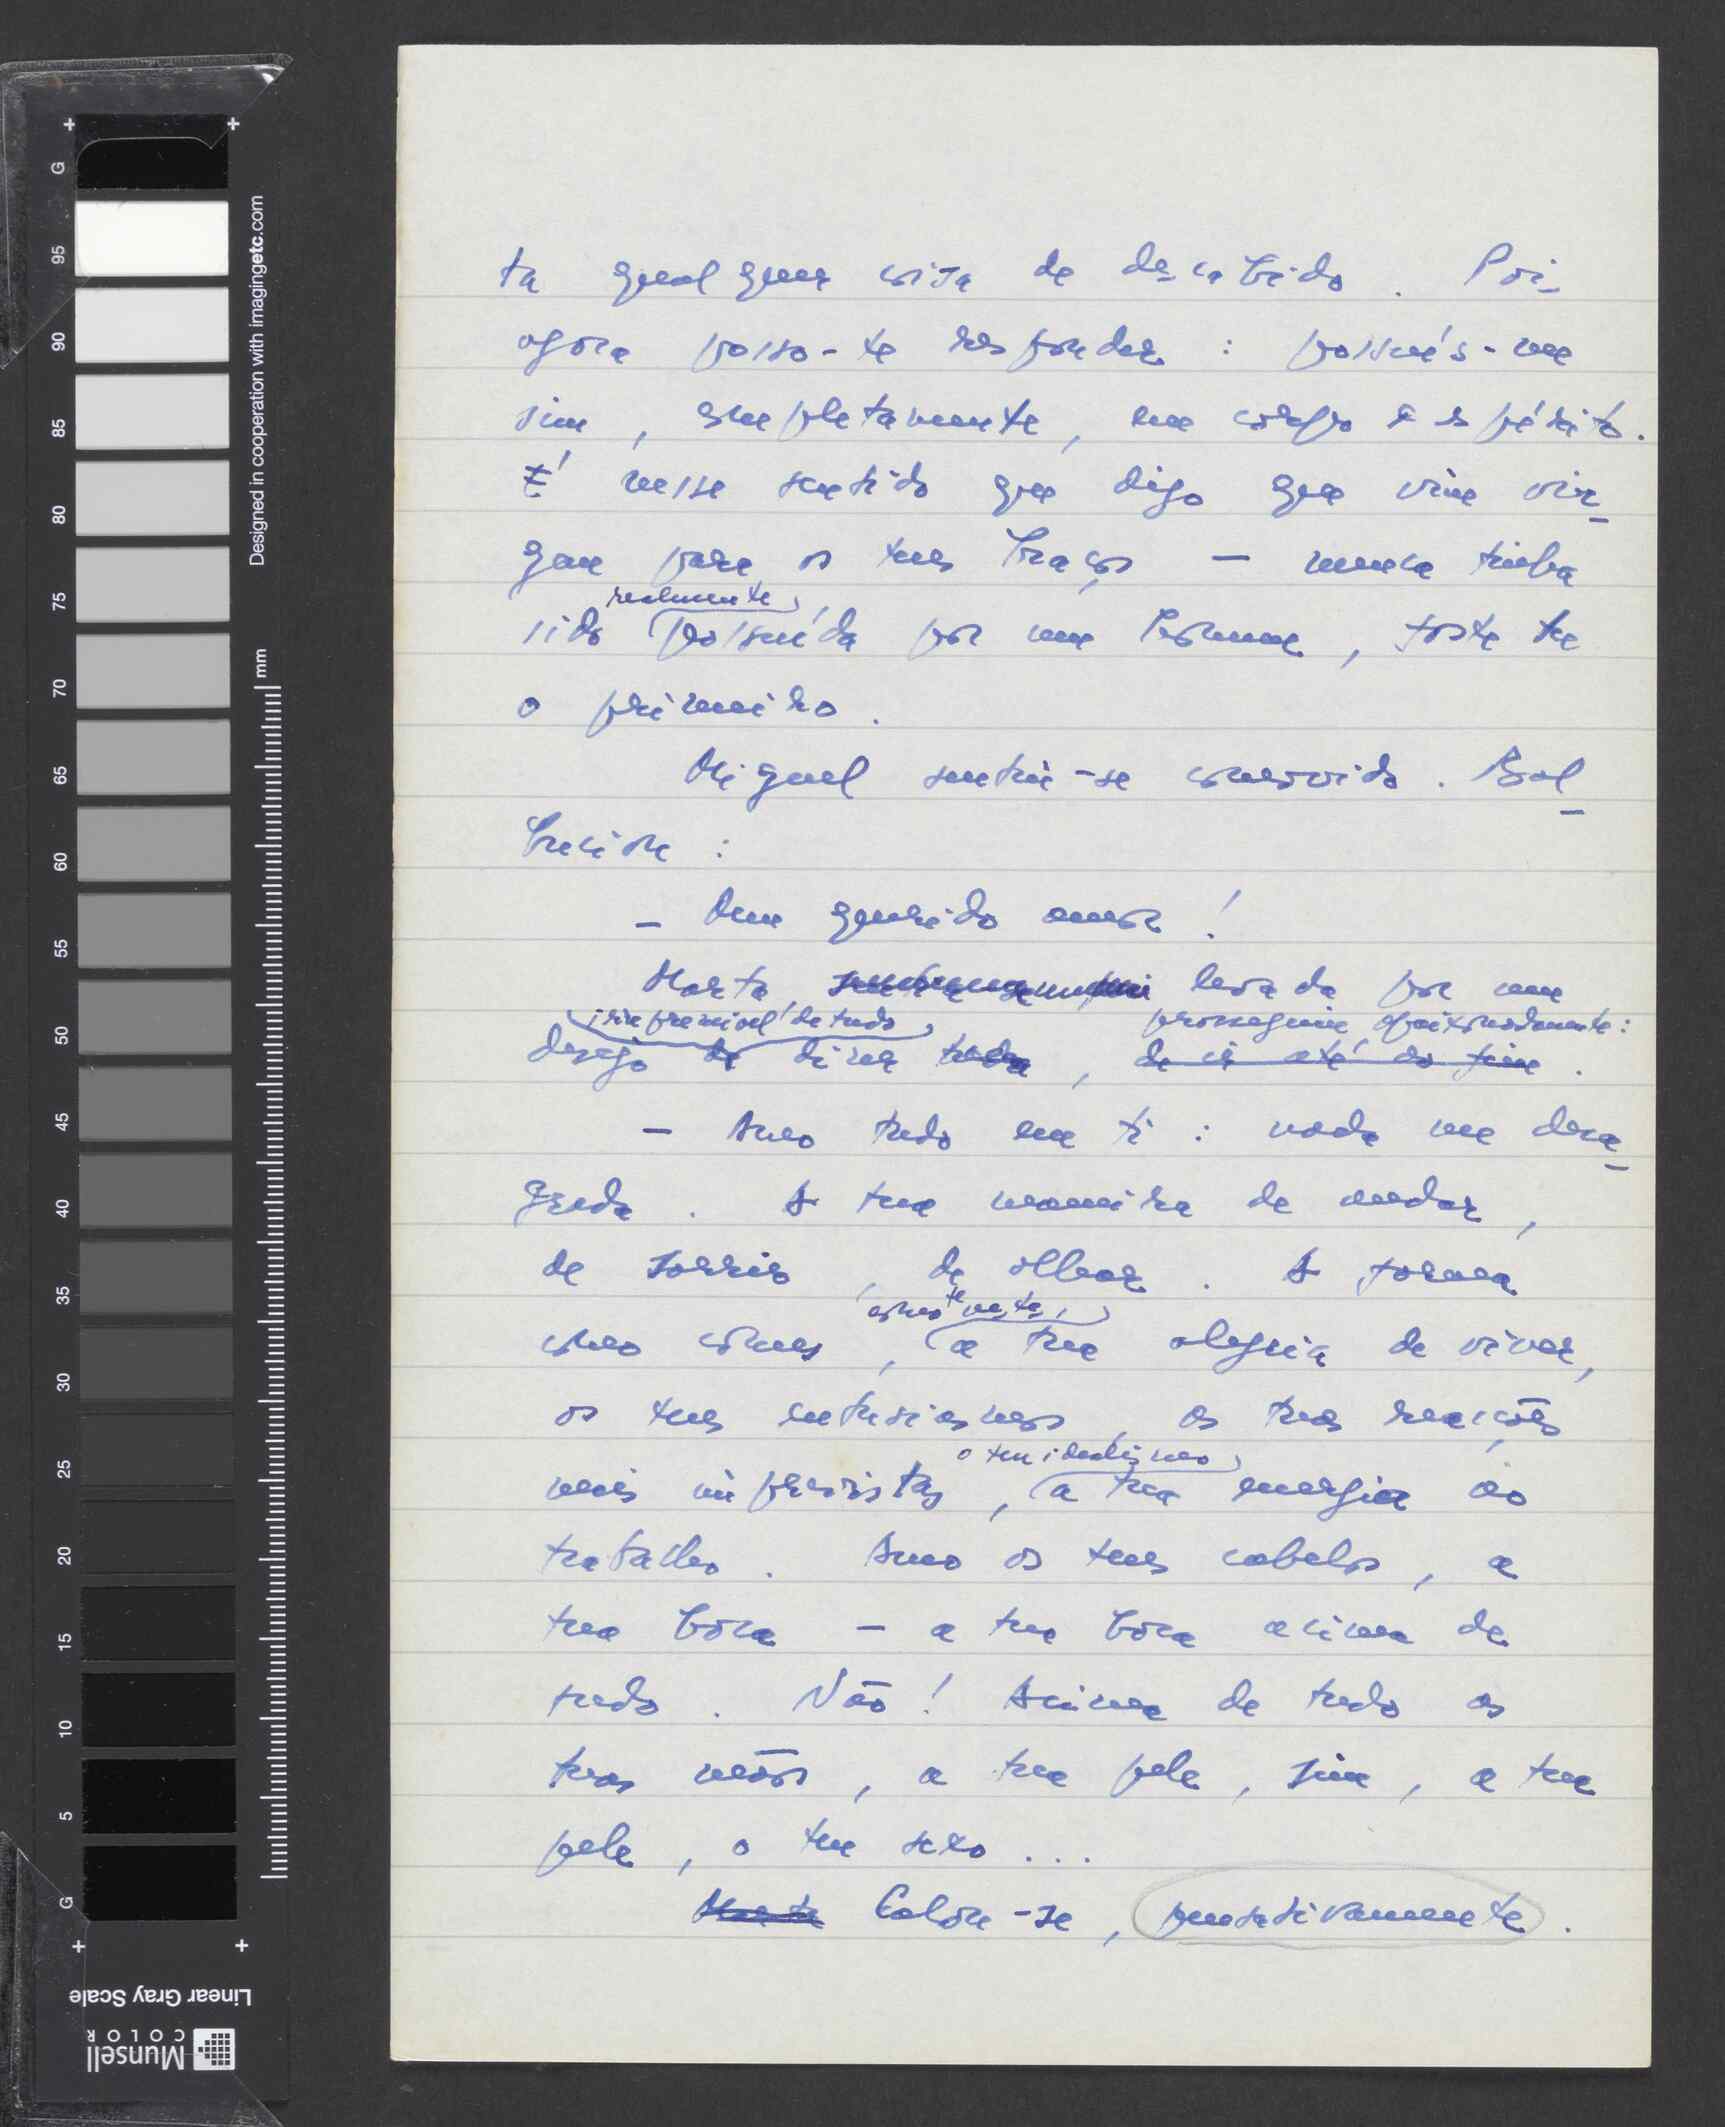 ta qualquer coisa de descabido. Pois
agora posso-te responder: possués-me
sim, completamente, em corpo e espírito.
É nesse sentido que digo que vim vir-
gem para os teus braços — nunca tinha
realmente
sido possuída por um homem, foste tu
o primeiro.
Miguel sentiu-se comovido. Bal-
buciou:
— Meu querido amor!
Marta levada por um
irreprimível de tudo prosseguiu apaixonadamente:
desejo de dizer tudo, de ir até ao fim.
— Amo tudo em ti: nada me desa-
grada. A tua maneira de andar,
de sorrir, de olhar. A forma
como te vestes,
como comes, a tua alegria de viver,
os teus entusiasmos, as tuas reacções
o teu idealismo
mais imprevistas, a tua energia ao
trabalho. Amo os teus cabelos, a
tua bôca — a tua bôca acima de
tudo. Não! Acima de tudo as
tuas mãos, a tua pele, sim, a tua
pele, o teu sexo...
Marta Calou-se, pensativamente.
Designed in cooperation with imagingetc.com
mm
G 95 90 85 80 75 70 65 60 55 50 45 40 35 30 25 20 15 10 5 G
Linear Gray Scale
Munsell
COLOR